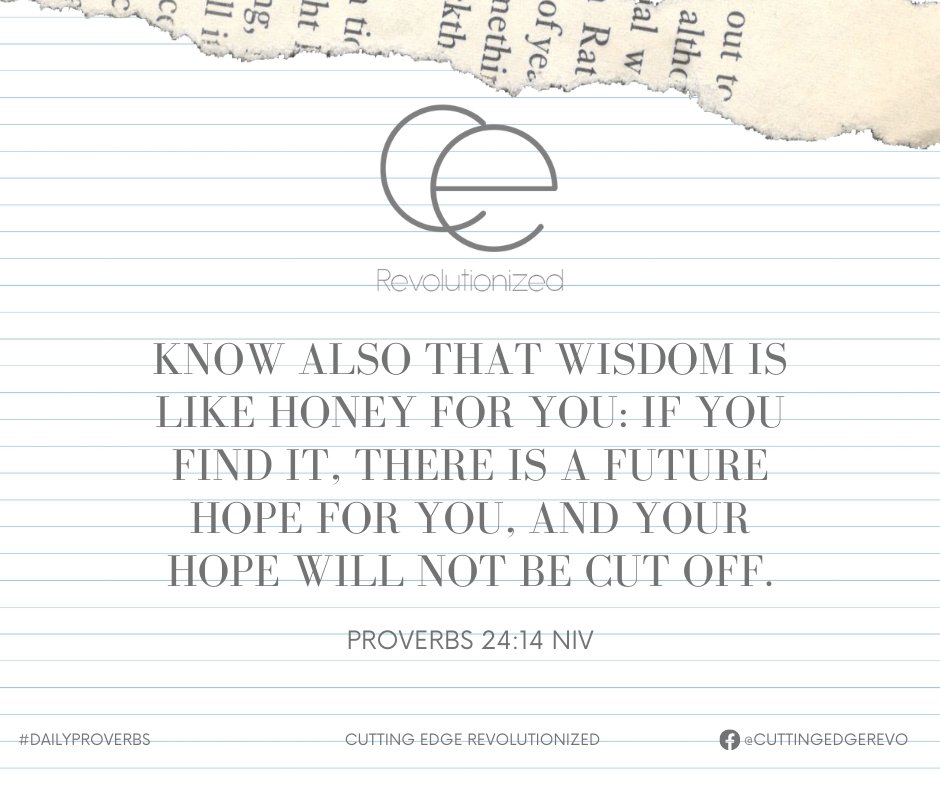 out to
altho
al w
Rat
of ye
methi
kth
n tic
ght
ng,
ll i
ce
Revolutionized
KNOW ALSO THAT WISDOM IS
LIKE HONEY FOR YOU: IF YOU
FIND IT, THERE IS A FUTURE
HOPE FOR YOU, AND YOUR
HOPE WILL NOT BE CUT OFF.
PROVERBS 24:14 NIV
#DAILYPROVERBS
CUTTING EDGE REVOLUTIONIZED
@CUTTINGEDGEREVO